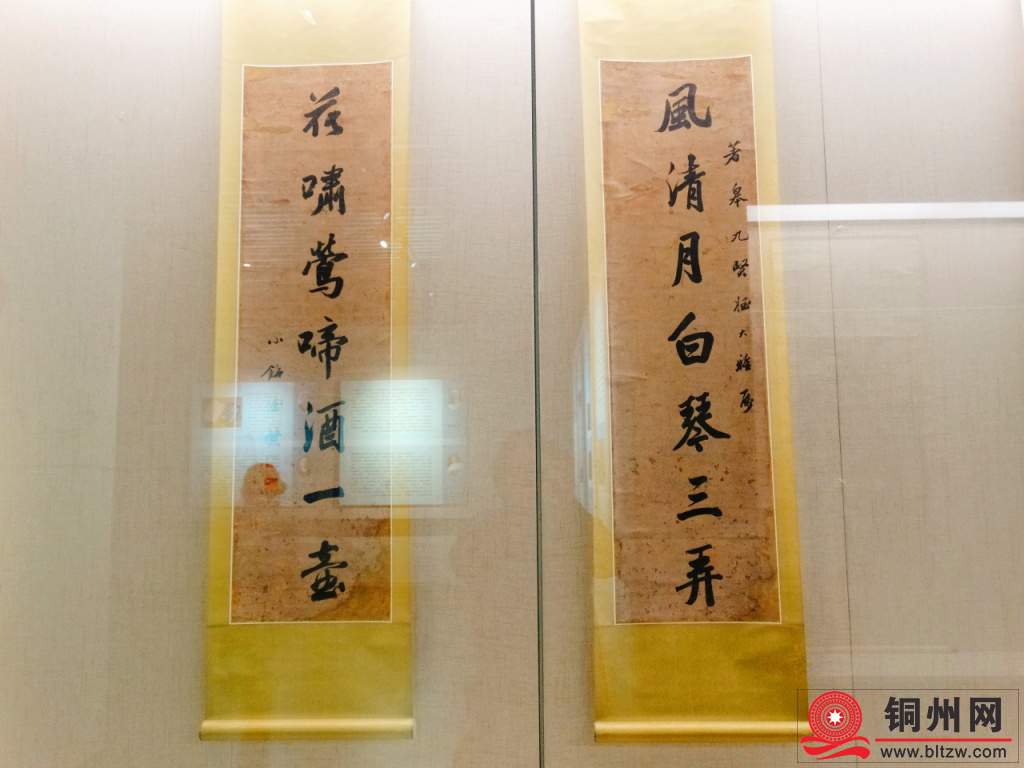 風清月白琴三弄
皋九賢姪大雅屬
花嘯鶯啼酒一壺
小
铜州网
www.bltzw.com